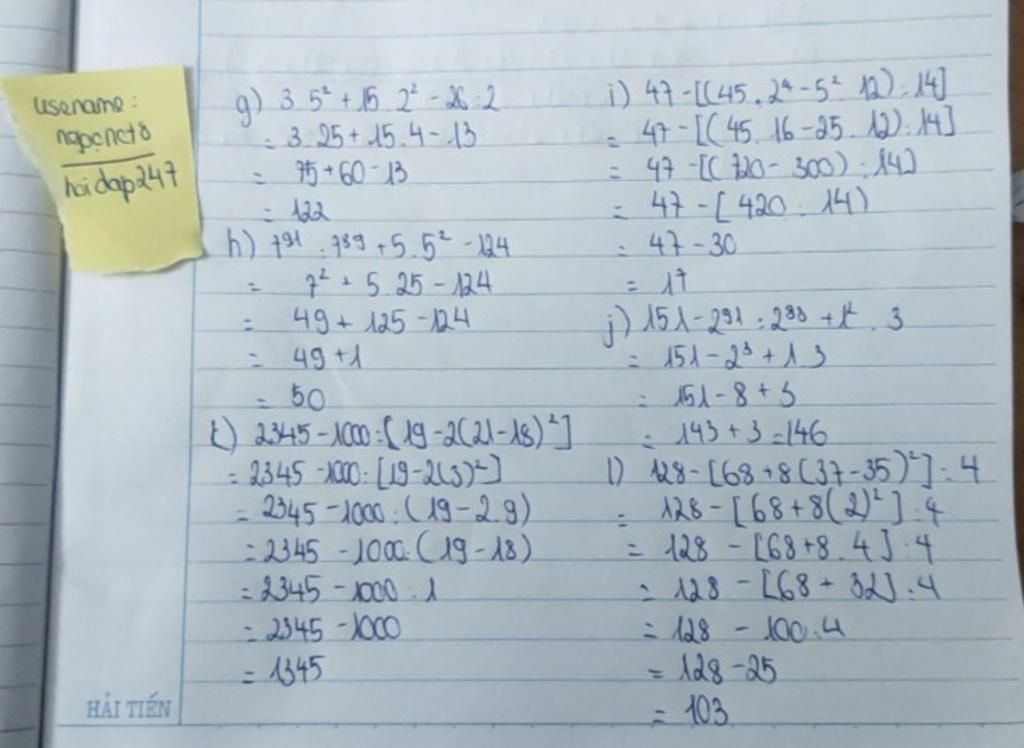 usename:
ngocnct8
hoidap247
g) 3.5² + 15.2² - 26:2
= 3.25 + 15.4 - 13
= 75 + 60 - 13
= 122
h) 7⁹¹ : 7⁸⁹ + 5.5² - 124
= 7² + 5.25 - 124
= 49 + 125 - 124
= 49 + 1
= 50
k) 2345 - 1000:[19 - 2(21 - 18)²]
= 2345 - 1000:[19 - 2(3)²]
= 2345 - 1000:(19 - 2.9)
= 2345 - 1000:(19 - 18)
= 2345 - 1000:1
= 2345 - 1000
= 1345
i) 47 - [(45.2⁴ - 5².12):14]
= 47 - [(45.16 - 25.12):14]
= 47 - [(720 - 300):14]
= 47 - [420:14)
= 47 - 30
= 17
j) 151 - 2⁹¹ : 2⁸⁸ + 1².3
= 151 - 2³ + 1.3
= 151 - 8 + 3
= 143 + 3 = 146
l) 128 - [68 + 8(37 - 35)²]:4
= 128 - [68 + 8(2)²]:4
= 128 - [68 + 8.4]:4
= 128 - [68 + 32]:4
= 128 - 100:4
= 128 - 25
= 103
HẢI TIẾN